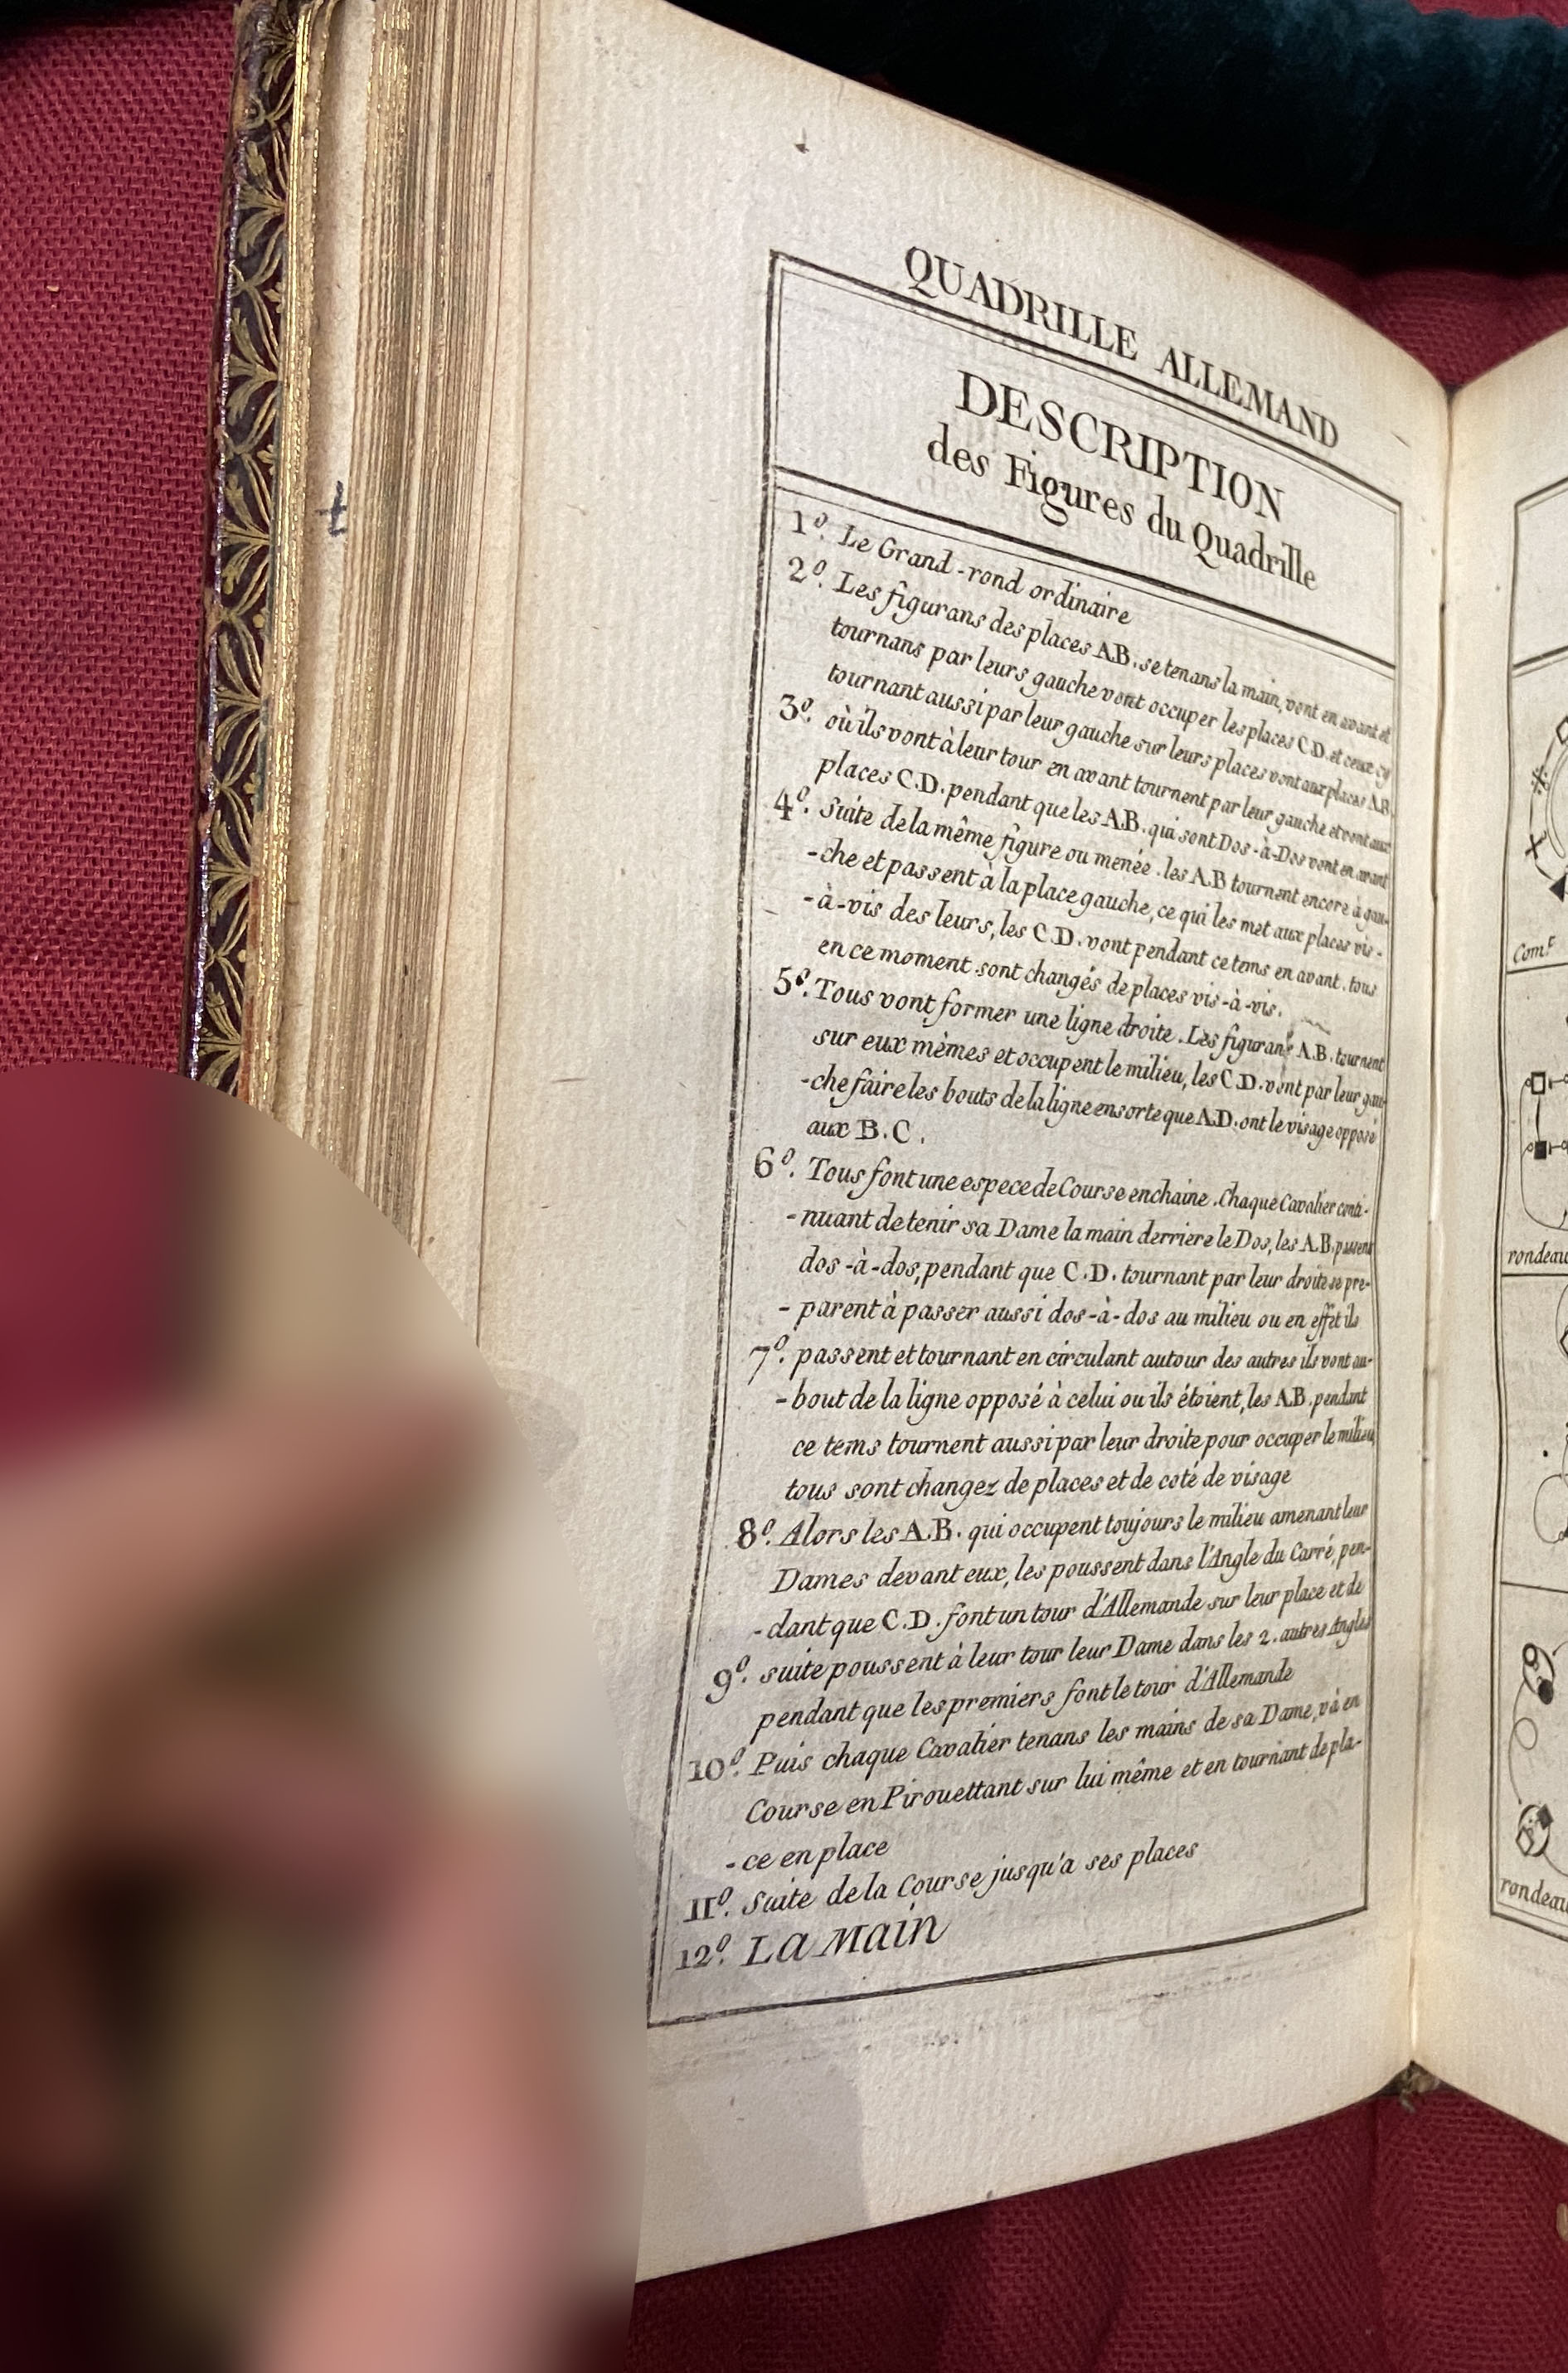 QUADRILLE ALLEMAND
DESCRIPTION
des Figures du Quadrille
1º. Le Grand-rond ordinaire
2º. Les figurans des places A.B. se tenans la main, vont en avant et
tournans par leurs gauche vont occuper les places C.D. et ceux cy
tournant aussi par leur gauche sur leurs places vont aux places A.B.
3º. où ils vont à leur tour en avant tournent par leur gauche et vont aux
places C.D. pendant que les A.B. qui sont Dos-à-Dos vont en avant
4º. Suite de la même figure ou menée. les A.B tournent encore à gau-
-che et passent à la place gauche, ce qui les met aux places vis-
-à-vis des leurs, les C.D. vont pendant ce tems en avant. tous
en ce moment sont changés de places vis-à-vis.
5º. Tous vont former une ligne droite. Les figurans A.B. tournent
sur eux mêmes et occupent le milieu, les C.D. vont par leur gau-
-che faire les bouts de la ligne ensorte que A.D. ont le visage opposé
aux B.C.
6º. Tous font une espece de Course enchaine. Chaque Cavalier conti-
-nuant de tenir sa Dame la main derriere le Dos, les A.B. passent
dos-à-dos, pendant que C.D. tournant par leur droite se pre-
-parent à passer aussi dos-à-dos au milieu ou en effet ils
7º. passent et tournant en circulant autour des autres ils vont au-
-bout de la ligne opposé à celui ou ils étoient, les A.B. pendant
ce tems tournent aussi par leur droite pour occuper le milieu,
tous sont changez de places et de coté de visage
8º. Alors les A.B. qui occupent toujours le milieu amenant leur
Dames devant eux, les poussent dans l'Angle du Carré, pen-
-dant que C.D. font un tour d'Allemande sur leur place et de
9º. suite poussent à leur tour leur Dame dans les 2. autres Angles
pendant que les premiers font le tour d'Allemande
10º. Puis chaque Cavalier tenans les mains de sa Dame, và en
Course en Pirouettant sur lui même et en tournant de pla-
-ce en place
11º. Suite de la Course jusqu'a ses places
12º. La Main
Com.t
rondeau
rondeau